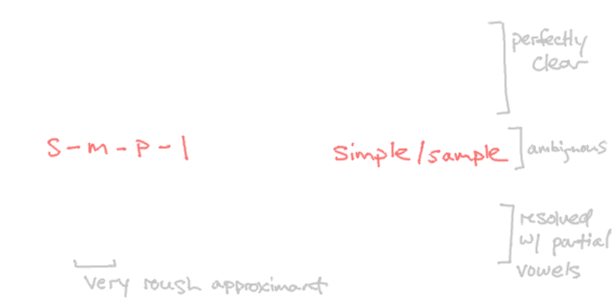 perfectly
clear
S-m-p-l
simple/sample
ambiguous
resolved
w/ partial
vowels
very rough approximant